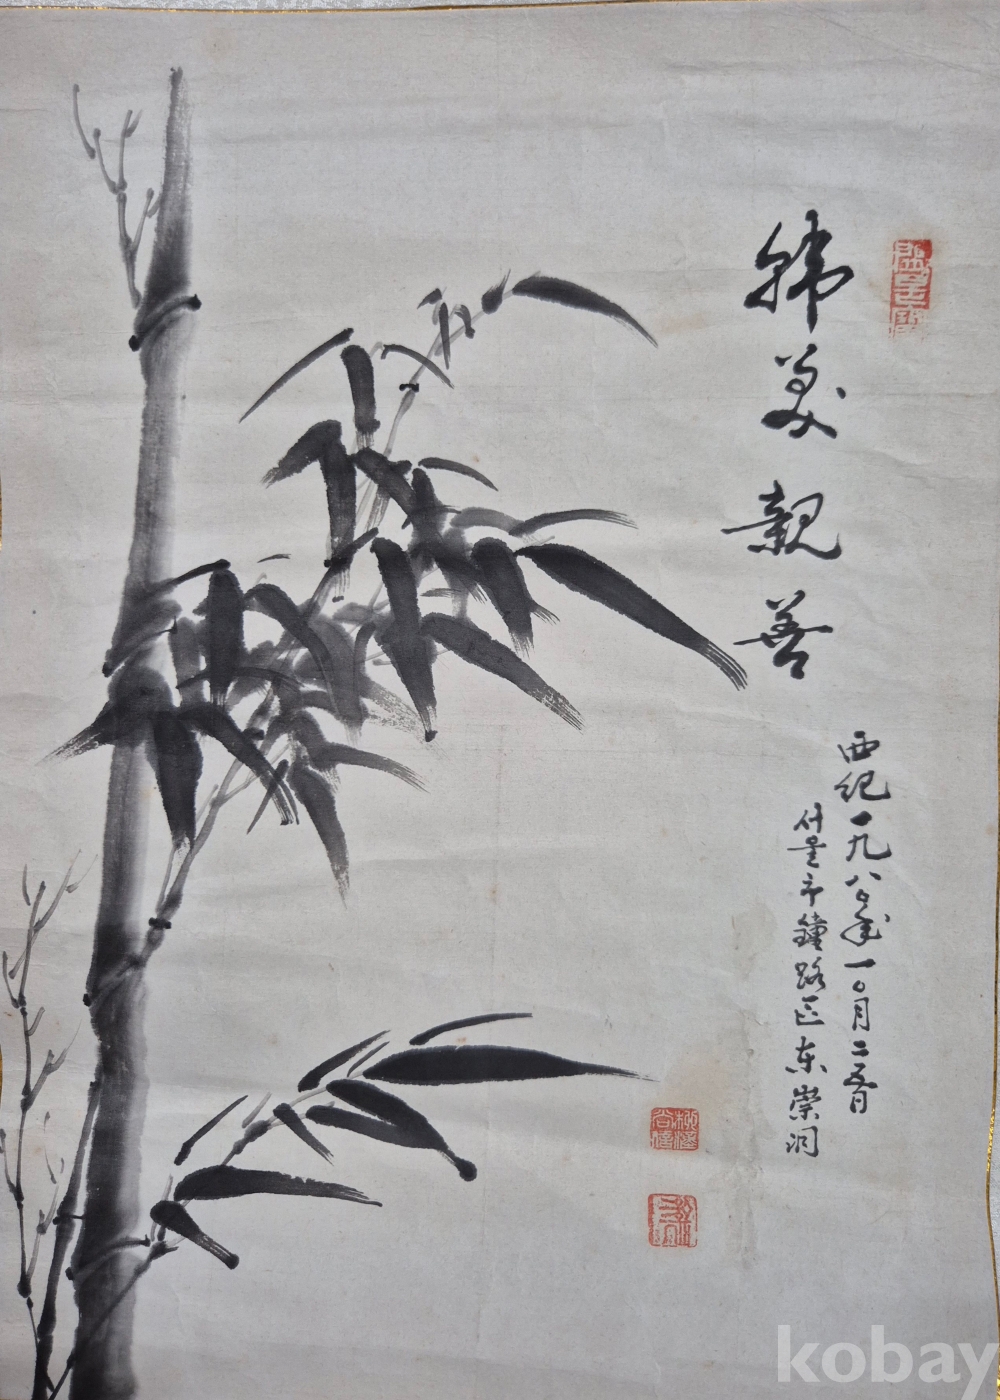 韓美親善
西紀一九八〇年一〇月二五日
서울市鐘路区东崇洞
kobay